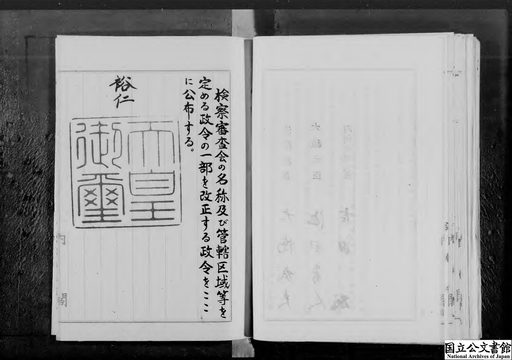 検察審査会の名称及び管轄区域等を
定める政令の一部を改正する政令をここ
に公布する。
裕仁
天皇
御璽
国立公文書館
National Archives of Japan